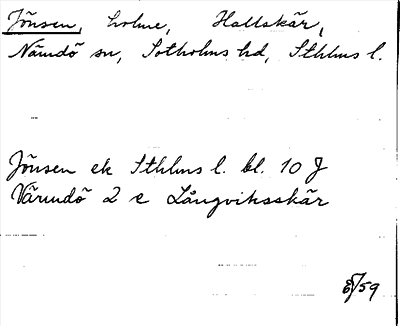 Jönsen, holme, Hallskär,
Nämdö sn, Sotholms hd, Sthlms l.
Jönsen ek Sthlms l. bl. 10 J
Värmdö 2 e Långviksskär
/59